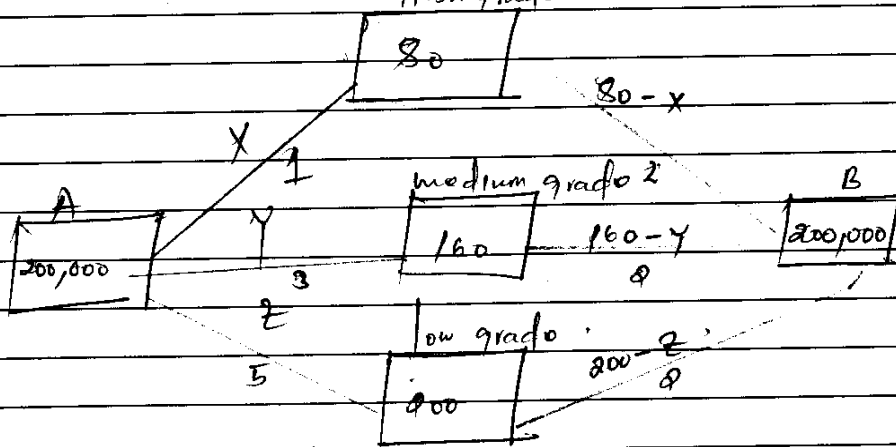 80
80-X
X
1
medium grade 2
A
B
Y
160
160-Y
200,000
200,000
3
2
Z
low grade
200-Z
5
2
200